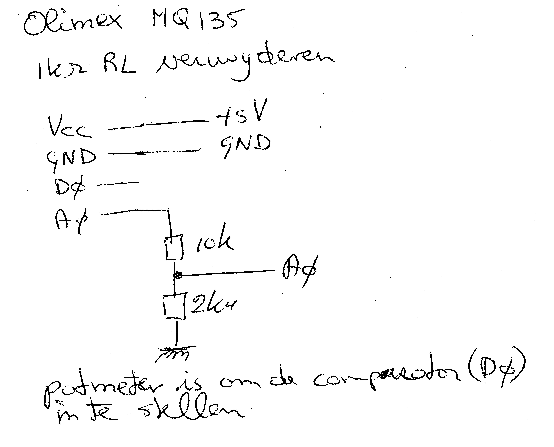 Olimex MQ135
1kΩ RL verwyderen
Vcc +5V
GND GND
D∅
A∅
10k
A∅
2k4
potmeter is om de comparator (D∅)
in te stellen.